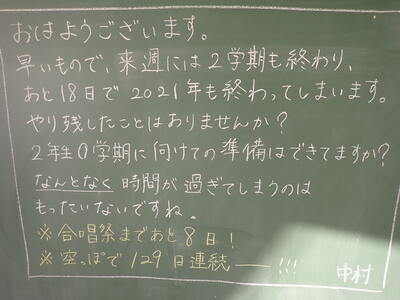 おはようございます。
早いもので、来週には2学期も終わり、
あと18日で2021年も終わってしまいます。
やり残したことはありませんか?
2年生0学期に向けての準備はできてますか?
なんとなく時間が過ぎてしまうのは
もったいないですね。
※合唱祭まであと8日!
※空っぽで129日連続――!!!
中村